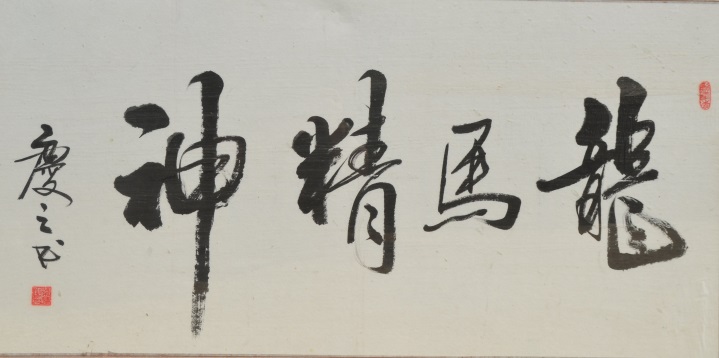 龍馬精神
慶之书